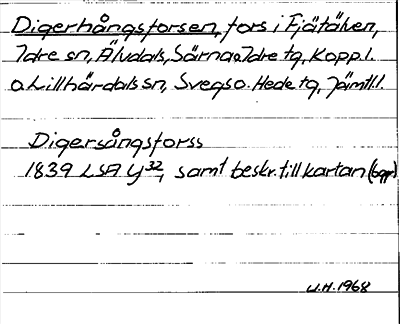 Digerhångsforsen, fors i Fjätälven,
Idre sn, Älvdals, Särna o. Idre tg, Kopp.l.
o. Lillhärdals sn, Svegs o. Hede tg, Jämtl.l.
Digersångsforss
1839 LSA Y 32/1 samt beskr. till kartan (bgr)
U.H. 1968